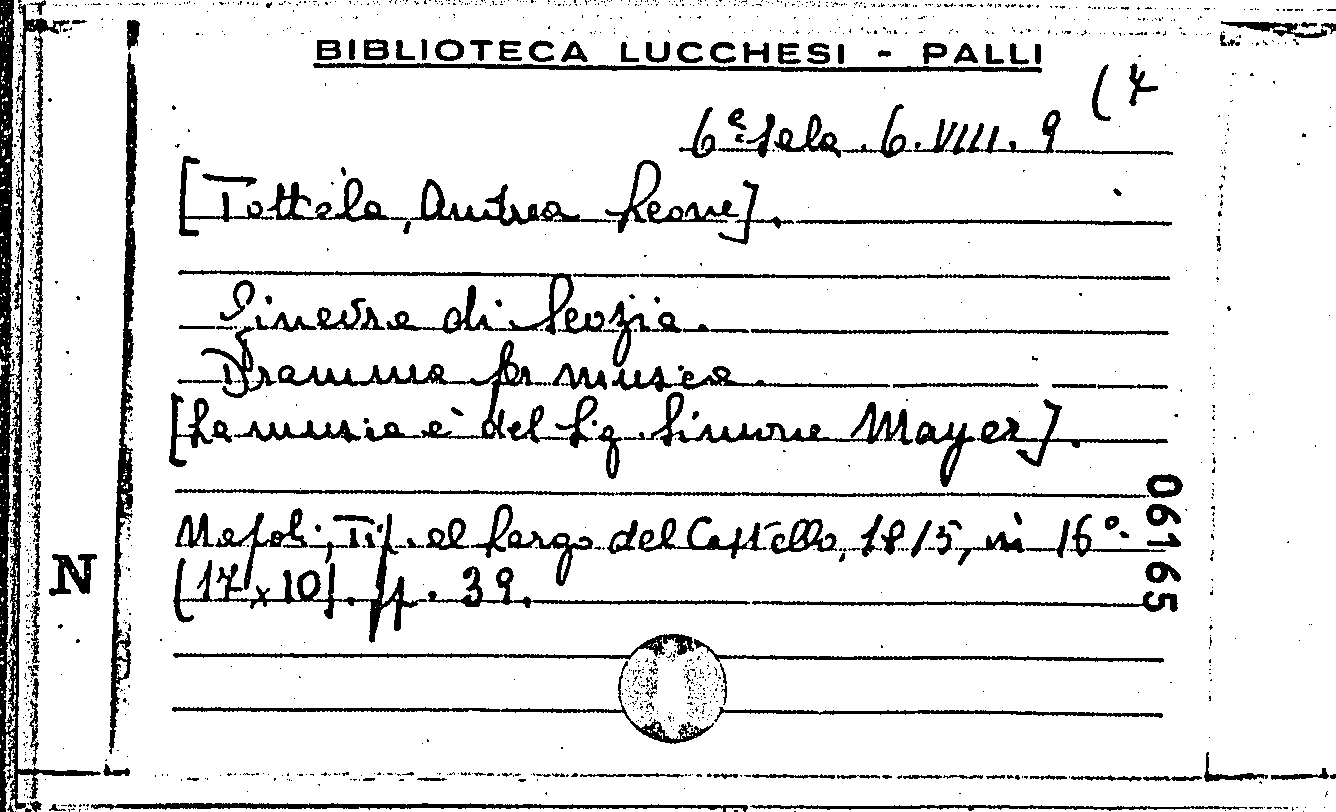 BIBLIOTECA LUCCHESI - PALLI
(4
6ª Sala. 6. VIII. 9
[Tottola, Andrea Leone].
Ginevra di Scozia.
Dramma per musica.
[La musica è del Sig. Simone Mayer].
Napoli, Tip. al Largo del Castello, 1815, in 16°.
(17x10). pp. 39.
N
06165